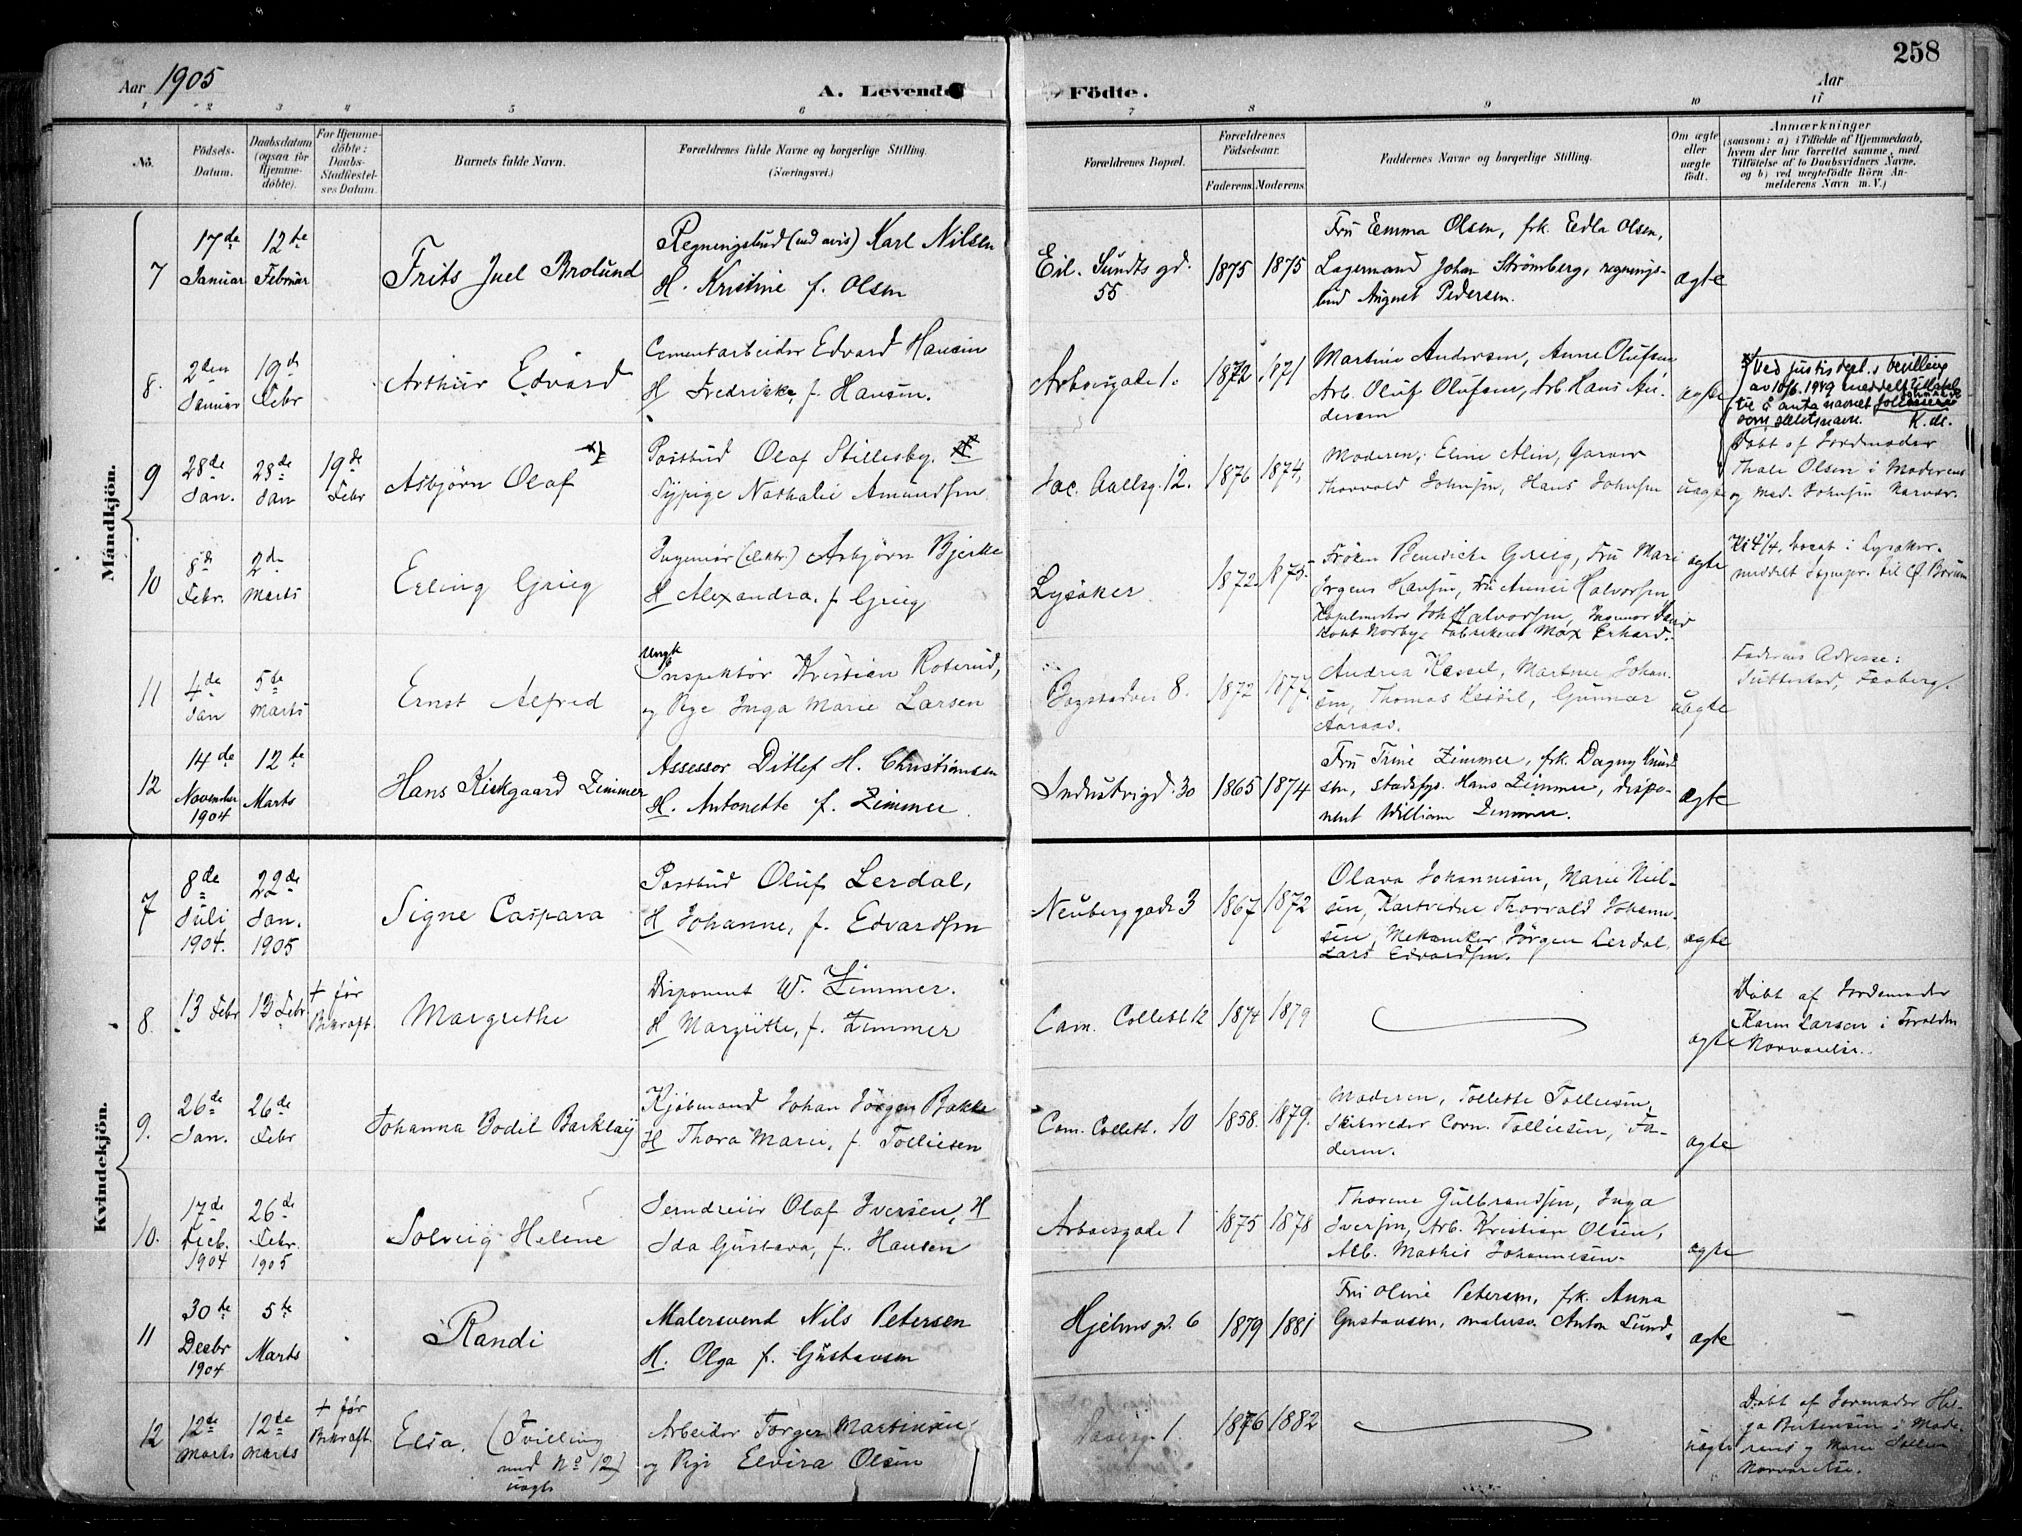 258
Aar 1905
A. Levende Födte.
Aar
1 2 3 4 5 6 7 8 9 10 11
No.
Födsels-
Datum.
Daabsdatum
(ogsaa for
Hjemme-
döbte).
For Hjemme-
döbte:
Daabs-
Stadfæstel-
ses Datum.
Barnets fulde Navn.
Forældrenes fulde Navne og borgerlige Stilling.
(Næringsvei.)
Forældrenes Bopæl.
Forældrenes
Födselsaar.
Faderens.
Moderens.
Faddernes Navne og borgerlige Stilling.
Om ægte
eller
uægte
født.
Anmærkninger
(saasom: a) i Tilfælde af Hjemmedaab,
hvem der har forrettet samme, med
Tilföielse af to Daabsvidners Navne,
og b) ved uægtefödte Börn An-
melderens Navn m. V.)
Mandkjön.
7
17de
Januar
12te
Februar
Frits Juel Brolund
Regningsbud (ved avis) Karl Nilsen
H. Kristine f. Olsen
Eil. Sundts gd.
55
1875
1875
Fru Emma Olsen, frk. Edla Olsen,
Lagermand Johan Strömberg, regnings-
bud August Pedersen.
ægte
8.
2den
Januar
19de
Febr
Arthur Edvard
Cementarbeider Edvard Hansen
H Fredrikke, f. Hansen.
Arboesgade 1.
1872
1871
Martine Andersen, Anne Olufsen,
Arb. Oluf Olufsen, Arb. Hans An-
dersen
ægte
x) Ved justisdept.s bevilling
av 10/6. 1949 meddelt tillatel
til å anta navnet
som slektsnavn. K. d.
9
28de
Jan.
28de
Jan
19de
Febr
Asbjørn Olaf x)
Postbud Olaf Stillesby.
Sypige Nathalie Amundsen
Jac. Aallsg. 12.
1876
1874,
Moderen, Eline Alin, Garver
Thorvald Johnsen, Hans Johnsen
uægte
Døbt af Jordmoder
Thale Olsen i Moderens
og Mad. Johnsens Nærvær.
10
8de
Febr.
2den
Marts
Erling Grieg
Ingeniør (elektr.) Asbjørn Bjerke
H Alexandra f. Grieg
Lysaker
1872
1875.
Frøken Benedicte Grieg, Fru Mari
Jørgens Hansen, Fru Annie Halvorsen,
Kapelmester Joh Halvorsen, Ingeniør
Norbye Fabrikeier Max Erhard.
ægte
bosat i Lysaker.
meddelt Sognepr. til Ø Bærum
11
4de
Jan
5te
Marts
Ernst Alfred
Ungk
Inspektør Kristian Roterud,
og Pige Inga Marie Larsen
Bogstadvei 8.
1872
1877.
Andrea Kessel, Martine Johan-
sen, Thomas Kessel, Gunnar
Aaraas.
uægte
Faderens Adresse:
Faaberg.
12
14de
November
1904
12te
Marts
Hans Kirkgaard Zimmer
Assessor Ditlef H. Christiansen
H. Antonette f. Zimmer
Industrigd. 30
1865
1874
Fru Trine Zimmer, frk. Dagny Knud-
sen, stadsfys. Hans Zimmer, dispo-
nent William Zimmer.
ægte
Kvindekjön.
7
8de
Juli
1904.
22de
Jan.
1905
Signe Caspara
Postbud Oluf Lerdal,
H Johanne, f. Edvardsen
Neuberggade 3
1867
1872
Olava Johannesen, Marie Niel-
sen, Thorvald Johanne-
sen, Mekaniker Jørgen Lerdal,
Lars Edvardsen.
ægte
8.
13 Febr
13 Febr
+ før
Bekræft.
Margrethe
Disponent W. Zimmer.
H Margrethe, f. Zimmer
Cam. Collett 12
1874
1879
ægte
Døbt af Jordemoder
Karen Larsen i Forældre
Nærværelse.
9.
26de
Jan.
26de
Febr
Johanna Bodil Barklay
Kjøbmand Johan Jørgen Bakke
H Thora Marie, f. Tollefsen
Cam. Collett. 10
1858.
1879.
Moderen, Tollette Tollefsen,
Skibsreder Corn. Tollefsen, Fa-
deren.
ægte
10.
17de
Decb.
1904
26de
Febr.
1905
Solveig Helene
Jerndreier Olaf Iversen, H
Ida Gustava, f. Hansen
Arboesgade 1
1875
1878
Thorene Gulbrandsen, Inga
Iversen, Arb. Kristian Olsen,
Arb. Mathis Johannesen.
ægte
11
30te
Decbr
1904
5te
Marts
Randi
Malersvend Nils Petersen
H. Olga f. Gustavsen
Hjelms gd. 6
1879
1881
Fru Oline Petersen, frk. Anna
Gustavsen, malersv. Anton Lund.
ægte
12
12te
Marts
12te
Marts
+ før
Bekræft.
Elsa. (Tvilling
med No 12)
uægte
Arbeider Torger Martinsen
og Pige Elvira Olsen
1.
1876
1882
uægte
Døbt af Jormoder Hel-
ga Berntsen i Mode-
rens og Marie
Nærværelse.